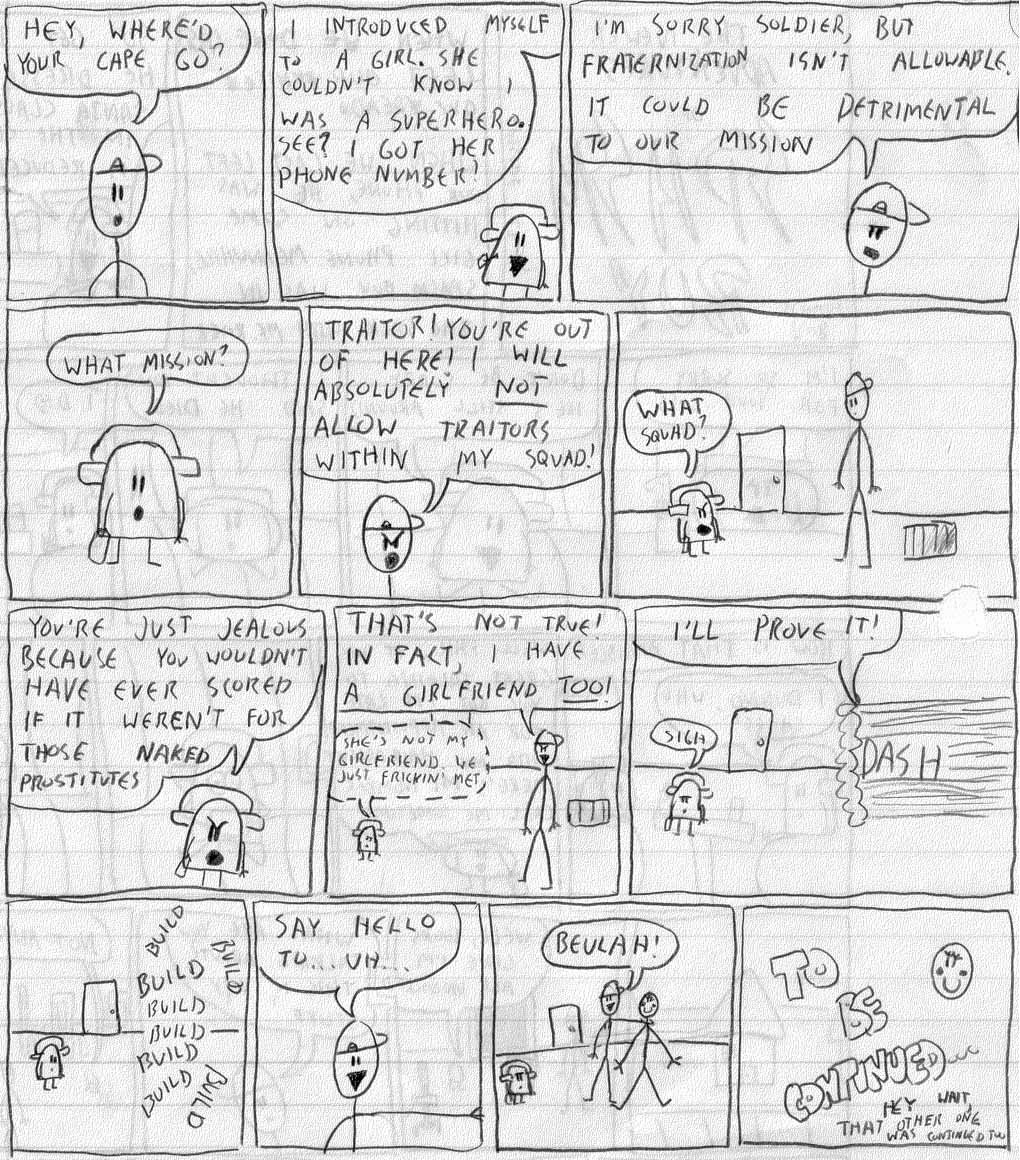 HEY, WHERE'D
YOUR CAPE GO?
I INTRODUCED MYSELF
TO A GIRL. SHE
COULDN'T KNOW I
WAS A SUPERHERO.
SEE? I GOT HER
PHONE NUMBER!
I'M SORRY SOLDIER, BUT
FRATERNIZATION ISN'T ALLOWABLE.
IT COULD BE DETRIMENTAL
TO OUR MISSION
WHAT MISSION?
TRAITOR! YOU'RE OUT
OF HERE! I WILL
ABSOLUTELY NOT
ALLOW TRAITORS
WITHIN MY SQUAD!
WHAT
SQUAD?
YOU'RE JUST JEALOUS
BECAUSE YOU WOULDN'T
HAVE EVER SCORED
IF IT WEREN'T FOR
THOSE NAKED
PROSTITUTES
THAT'S NOT TRUE!
IN FACT, I HAVE
A GIRLFRIEND TOO!
SHE'S NOT MY
GIRLFRIEND. WE
JUST FRICKIN' MET.
I'LL PROVE IT!
SIGH
DASH
BUILD
BUILD
BUILD
BUILD
BUILD
BUILD
BUILD
BUILD
SAY HELLO
TO... UH...
BEULAH!
TO
BE
CONTINUED...
HEY WAIT,
THAT OTHER ONE
WAS CONTINUED TOO